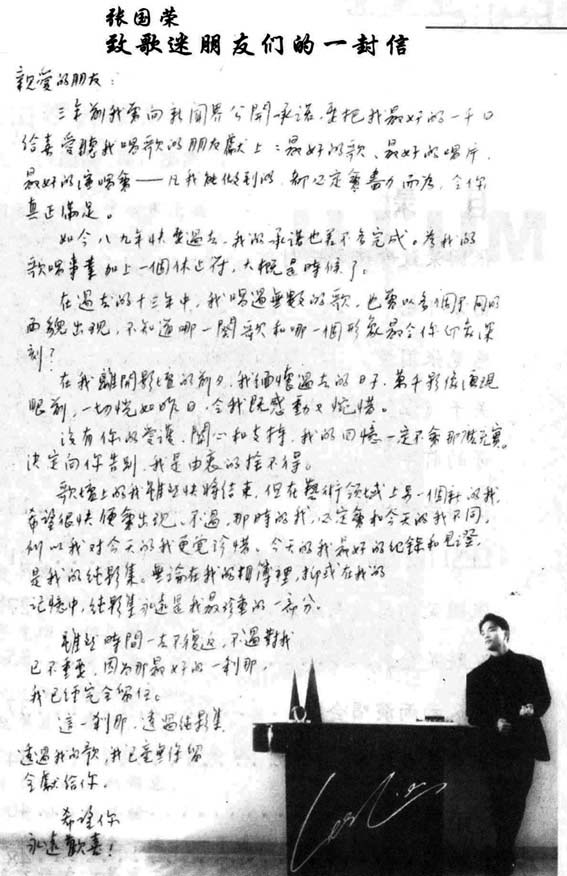 张国荣
致歌迷朋友们的一封信
親愛的朋友：
三年前我曾向新聞界公開承諾，要把我最好的一千日
給喜愛聽我唱歌的朋友獻上：最好的歌、最好的唱片、
最好的演唱會——凡我能做到的，都必定會盡力而為，令你
真正滿足。
如今八九年快要過去，我的承諾也差不多完成。為我的
歌唱事業加上一個休止符，大概是時候了。
在過去的十三年中，我唱過無數的歌，也曾以多個不同的
面貌出現，不知道哪一闋歌和哪一個形象最令你印象深
刻？
在我離開影壇的前夕，我緬懷過去的日子，萬千影像湧現
眼前，一切恍如昨日，令我既感動又惋惜。
沒有你的愛護、關心和支持，我的回憶一定不會那樣充實。
決定向你告別，我是由衷的捨不得。
歌壇上的我雖然快將結束，但在藝術領域上另一個新的我，
希望很快便會出現。不過，那時的我，必定會和今天的我不同，
所以我對今天的我更覺珍惜。今天的我最好的紀錄和見證，
是我的錄影集。無論在我的相簿裡，抑或在我的
記憶中，錄影集永遠是我最珍重的一部分。
雖然時間一去不復返，不過對我
已不重要，因為那最好的一剎那，
我已經完全留住。
這一剎那，透過錄影集
透過我的歌，我已毫無保留
全獻給你。
希望你
永遠歡喜！
Leslie